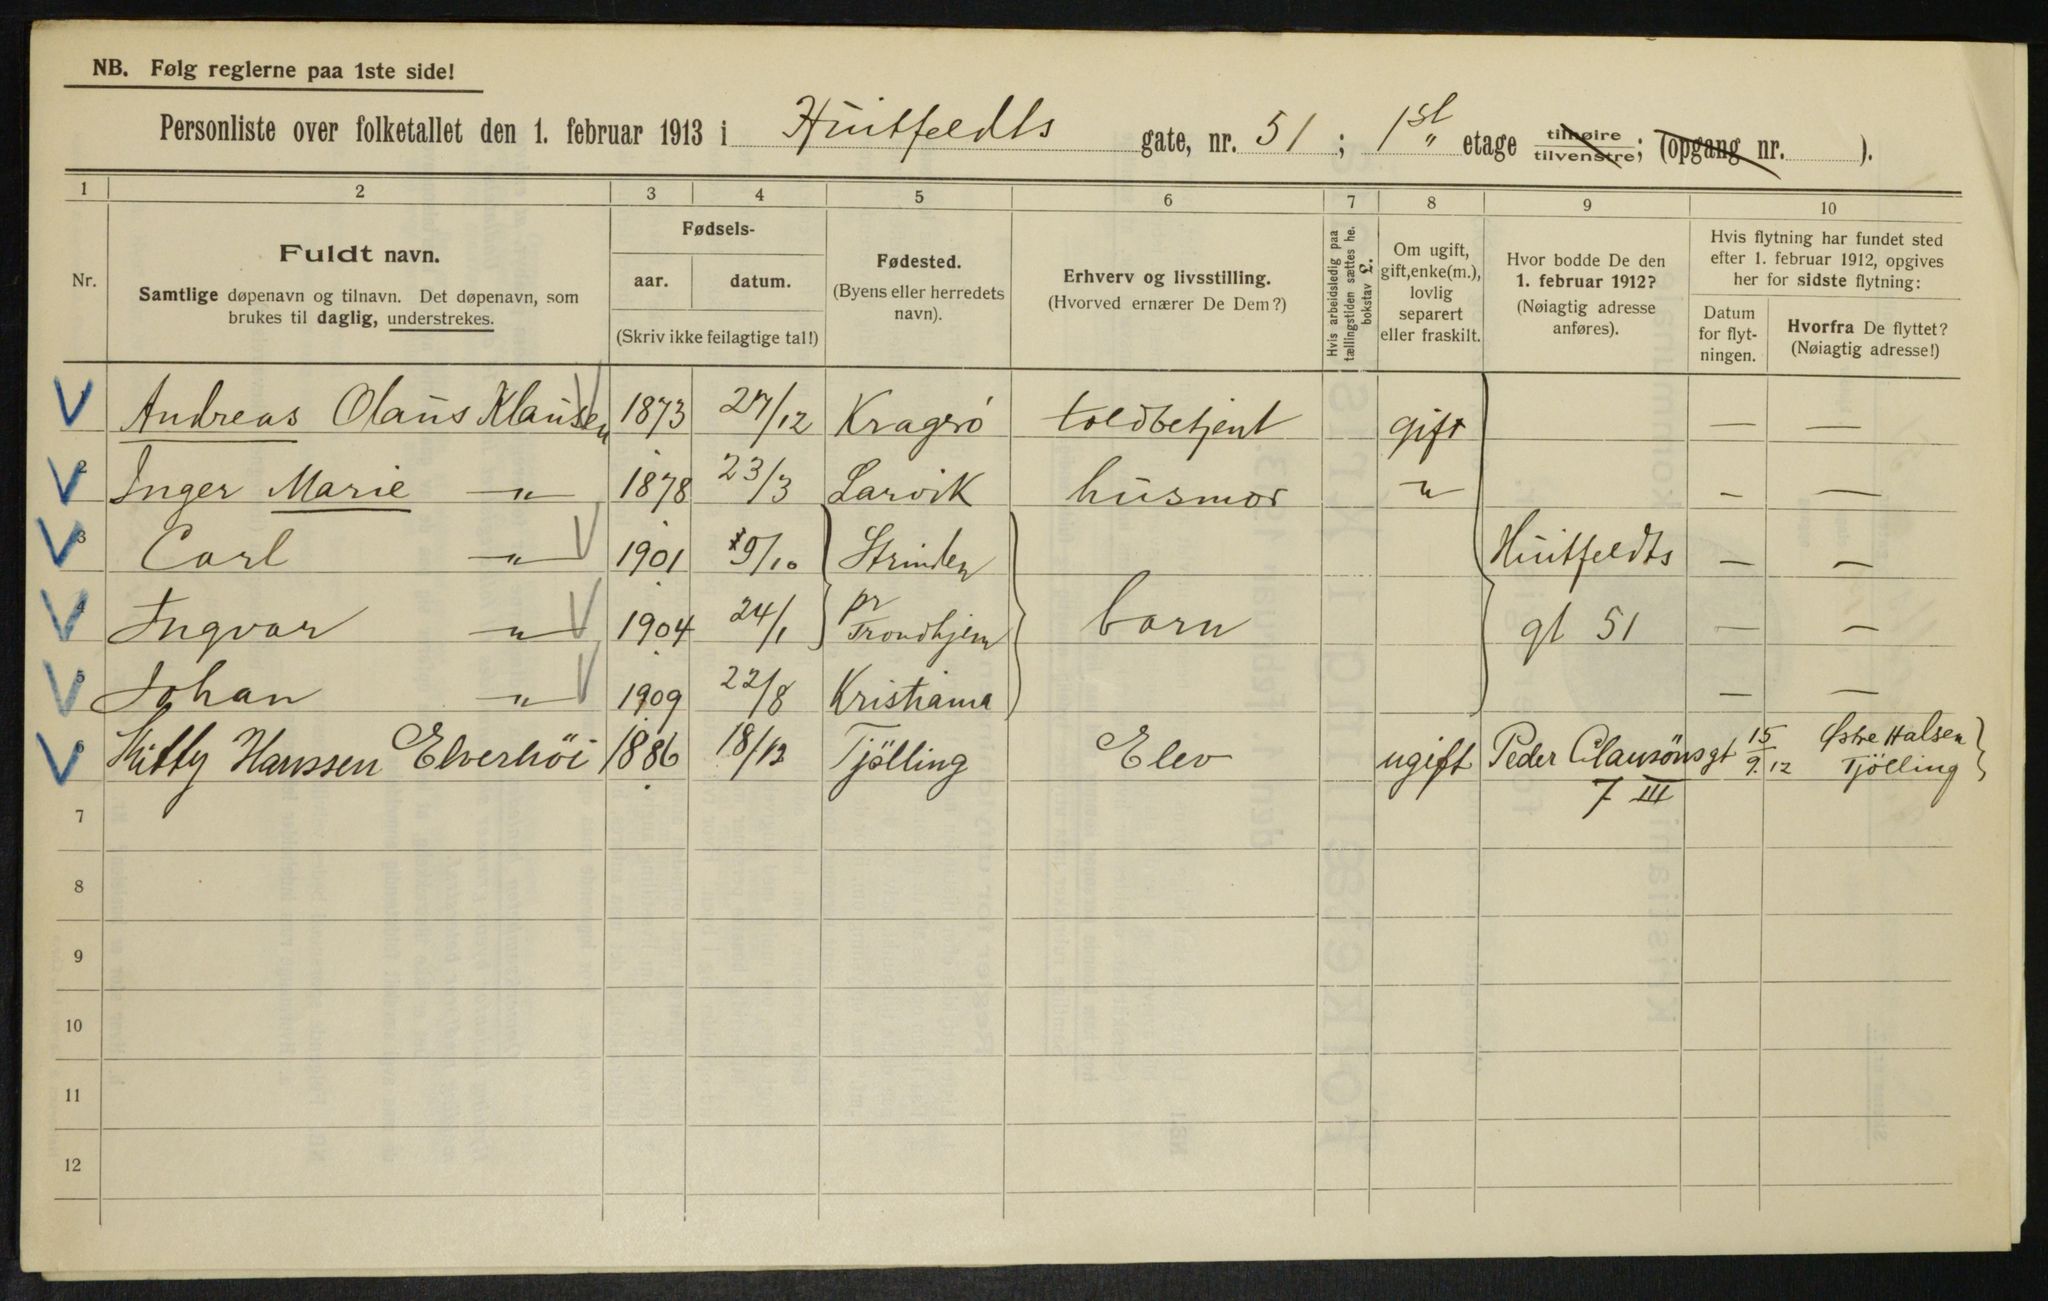 NB. Følg reglerne paa 1ste side!
Personliste over folketallet den 1. februar 1913 i Huitfeldts gate, nr. 51; 1st etage tilhøire tilvenstre; (opgang nr. ).
1 2 3 4 5 6 7 8 9 10
Nr.
Fuldt navn.
Samtlige døpenavn og tilnavn. Det døpenavn, som
brukes til daglig, understrekes.
Fødsels-
aar. datum.
(Skriv ikke feilagtige tal!)
Fødested.
(Byens eller herredets
navn).
Erhverv og livsstilling.
(Hvorved ernærer De Dem?)
Hvis arbeidsledig paa
tællingstiden sættes he.
bokstav L.
Om ugift,
gift, enke(m.),
lovlig
separert
eller fraskilt.
Hvor bodde De den
1. februar 1912?
(Nøiagtig adresse
anføres).
Hvis flytning har fundet sted
efter 1. februar 1912, opgives
her for sidste flytning:
Datum
for flyt-
ningen.
Hvorfra De flyttet?
(Nøiagtig adresse!)
1 Andreas Olaus Klausen 1873 27/12 Kragerö toldbetjent gift — —
2 Inger Marie —"— 1878 23/3 Larvik husmor " — —
3 Carl —"— 1901 9/10 Strinden Huitfeldts — —
4 Ingvar —"— 1904 24/1 pr Trondhjem barn gt 51 — —
5 Johan —"— 1909 22/8 Kristiania — —
6 Kitty Hanssen Elverhöi 1886 18/12 Tjölling Elev ugift Peder Clausönsgt 15/9 12 Østre Halsen
7 III Tjölling
7
8
9
10
11
12